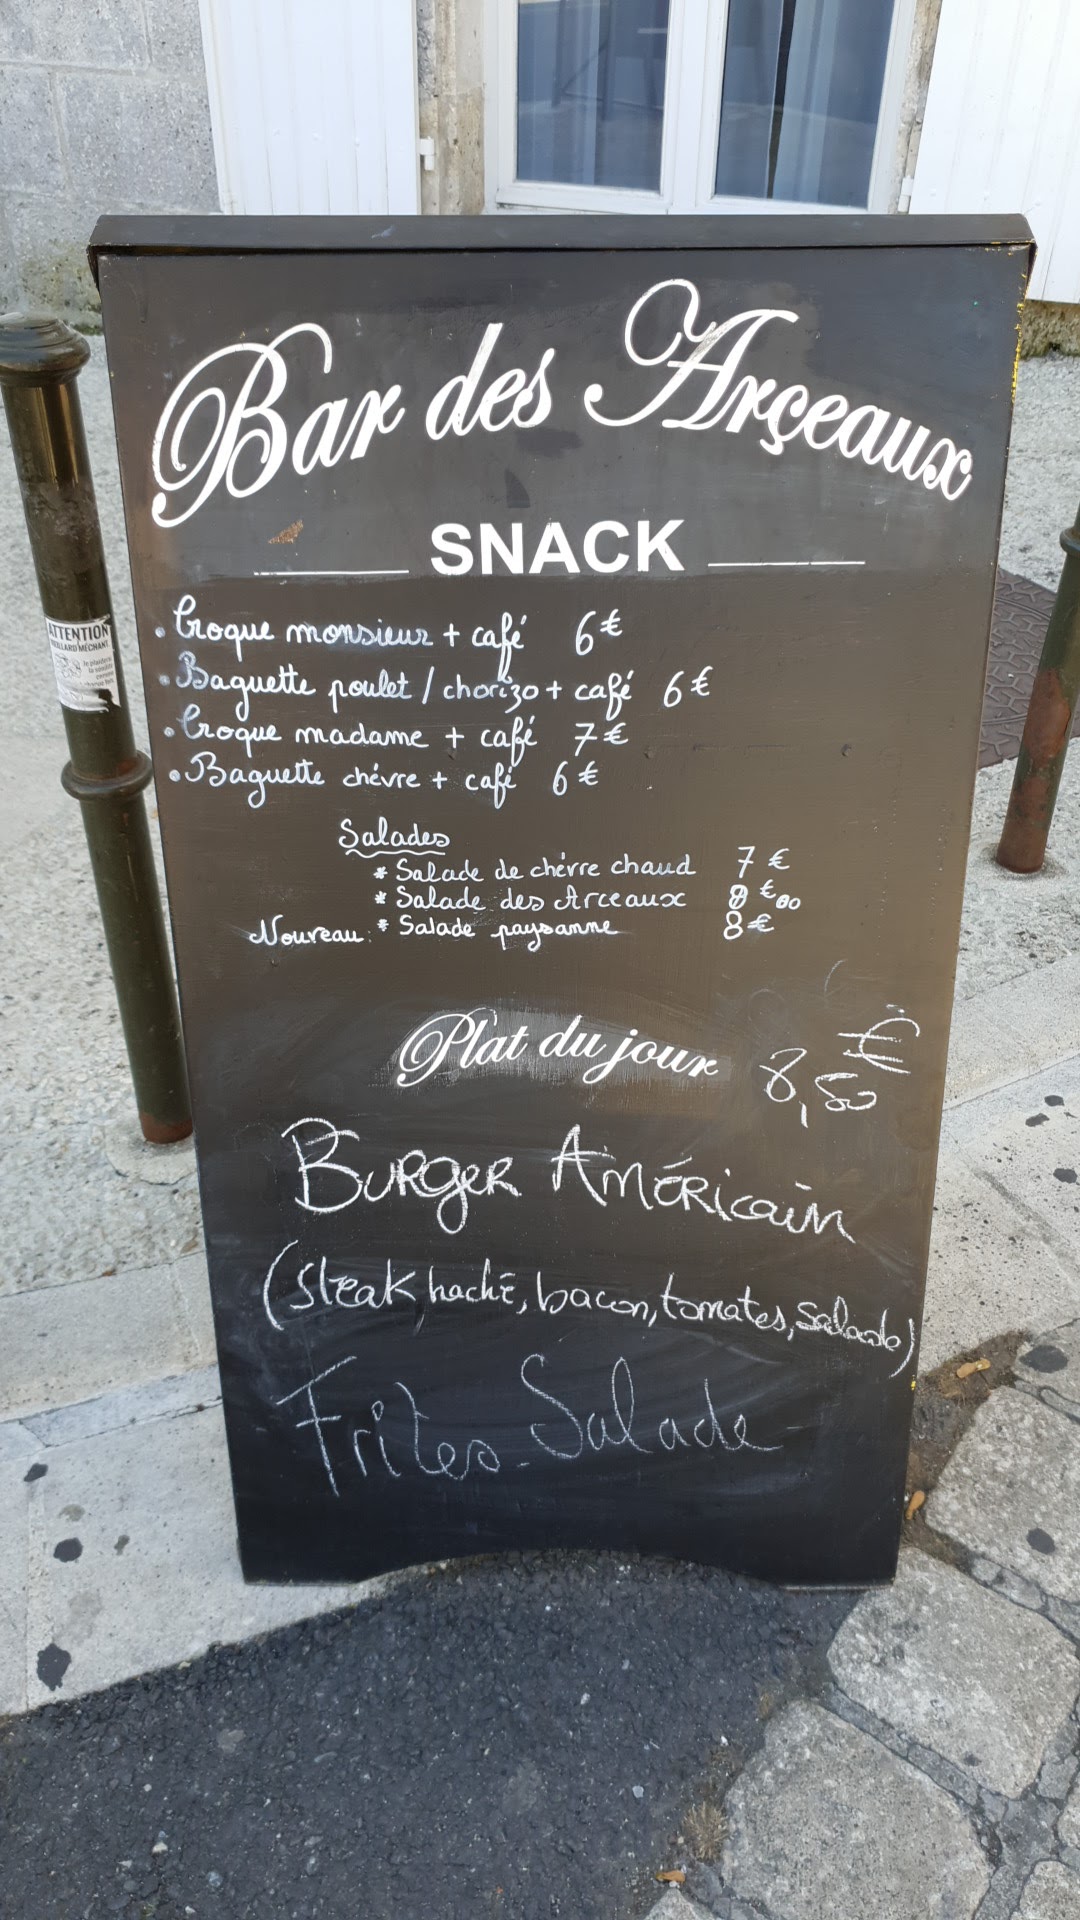 Bar des Arçeaux
SNACK
• Croque monsieur + café 6€
• Baguette poulet / chorizo + café 6€
• Croque madame + café 7€
• Baguette chévre + café 6€
Salades
* Salade de chévre chaud 7€
* Salade des Arceaux 8€00
Nouveau: * Salade paysanne 8€
Plat du jour 8,50 €
Burger Américain
(steak haché, bacon, tomates, salade)
Frites - Salade
ATTENTION
VIEILLARD MÉCHANT